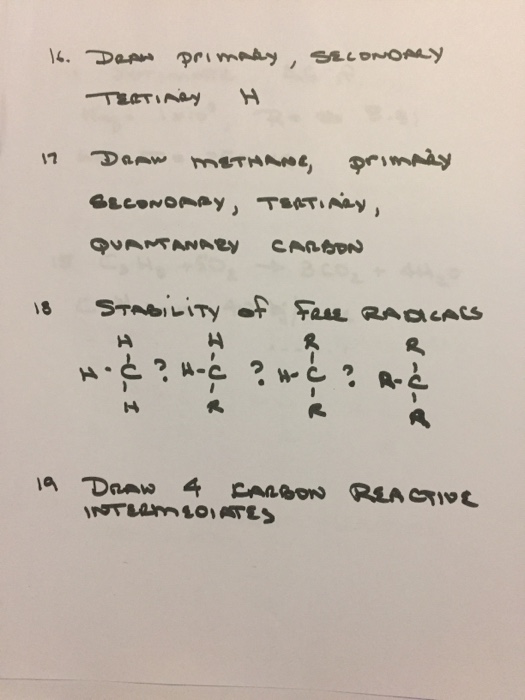 16. DRAW primary, SECONDARY
TERTIARY H
17 DRAW METHANE, primary
SECONDARY, TERTIARY,
QUANTANARY CARBON
18 STABILITY of FREE RADICALS
H H R R
H-C ? H-C ? H-C ? R-C
H R R R
19 DRAW 4 CARBON REACTIVE
INTERMEDIATES